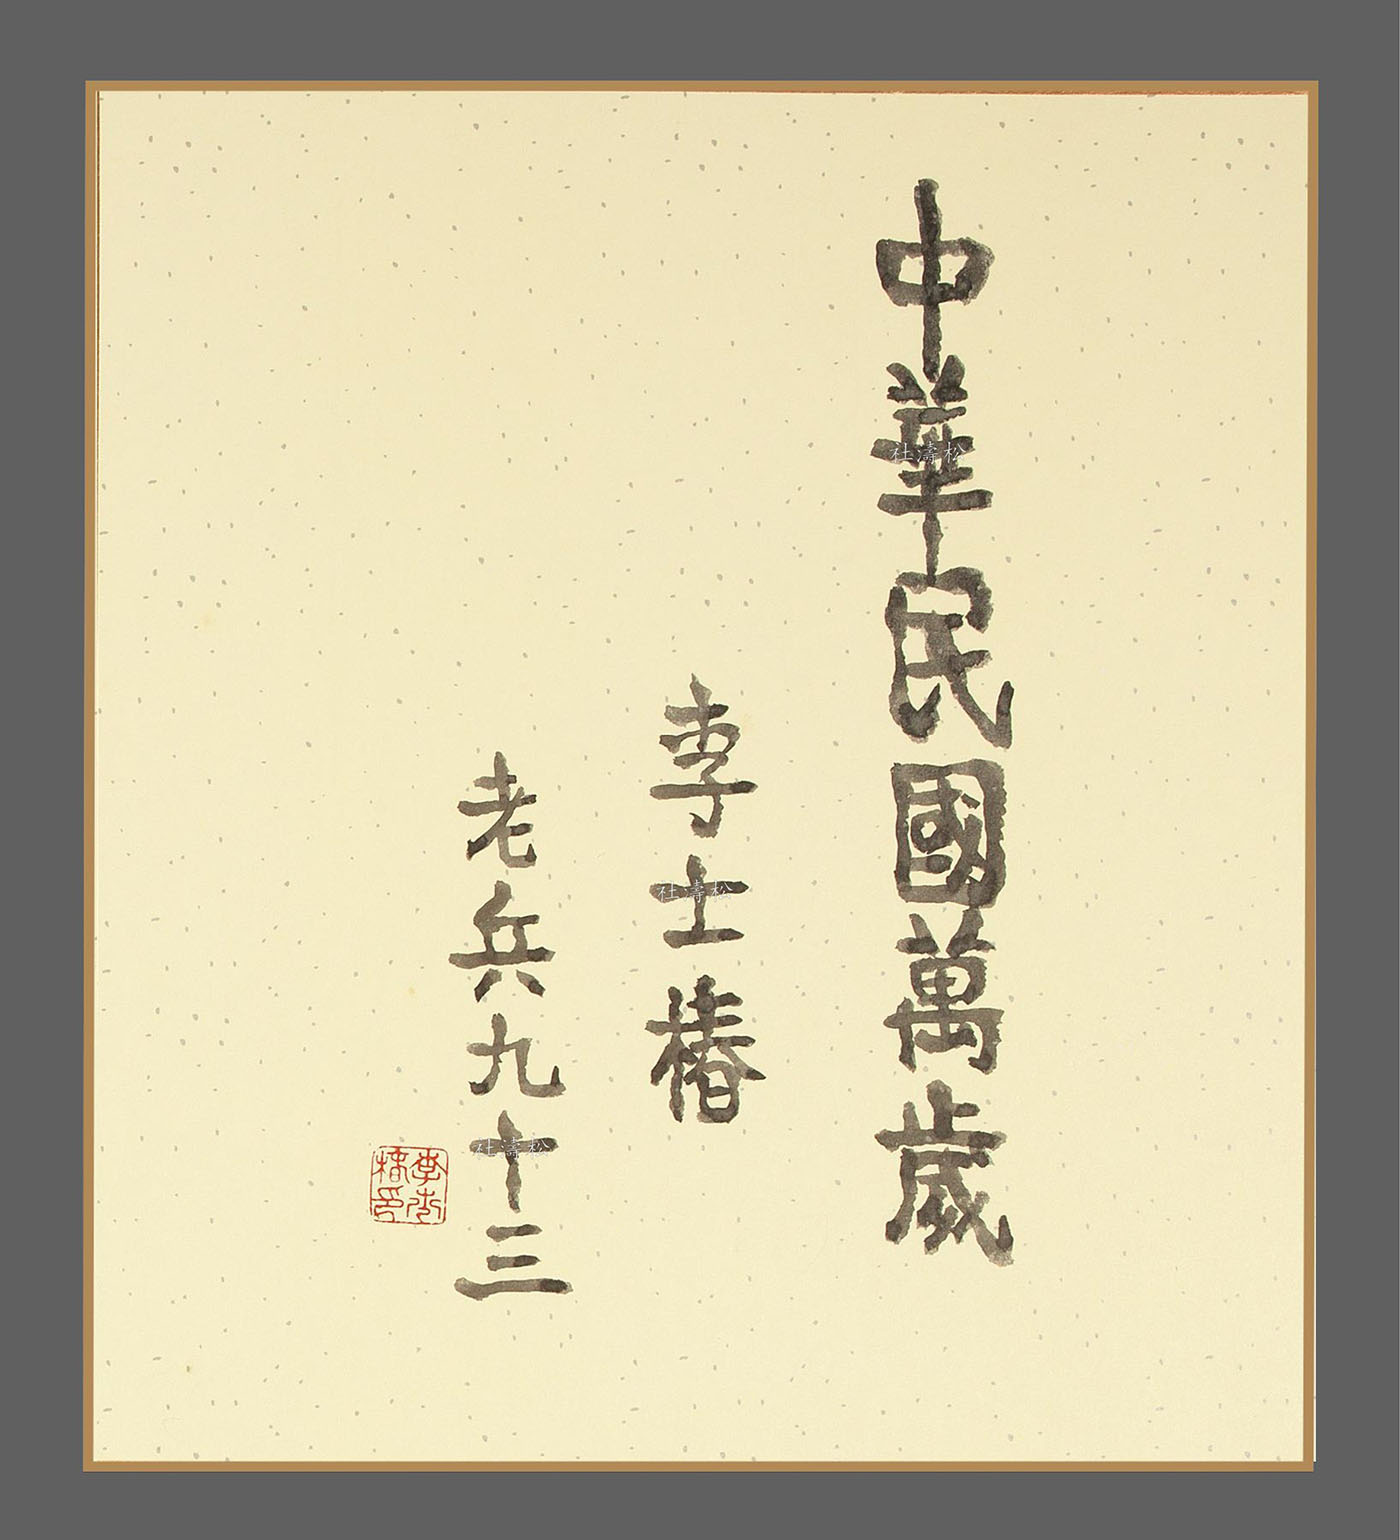 中華民國萬歲
李士椿
老兵九十三
李士
椿印
社濤松
社濤松
社濤松